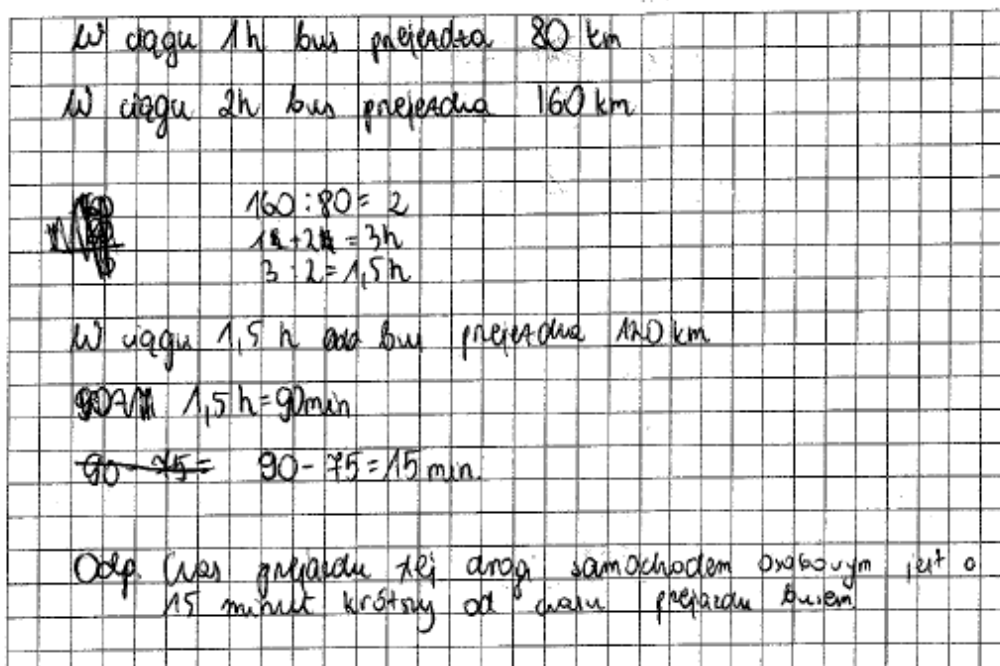 W ciągu 1h bus przejeżdża 80 km
W ciągu 2h bus przejeżdża 160 km
160 : 80 = 2
1h + 2h = 3h
3 : 2 = 1,5 h
W ciągu 1,5 h bus przejeżdża 120 km
1,5 h = 90min
90 - 75 = 90 - 75 = 15 min.
Odp. Czas przejazdu tej drogi samochodem osobowym jest o
15 minut krótszy od czasu przejazdu busem